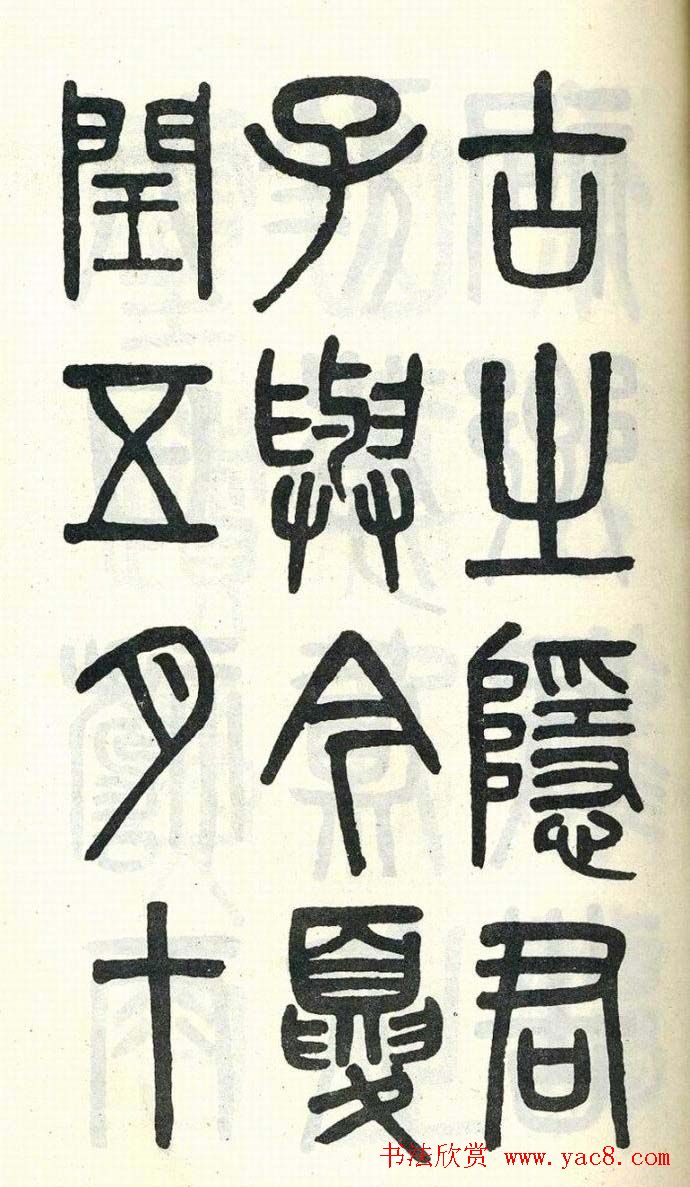 古之隱君
子與今夏
閏五月十
书法欣赏 www.yac8.com